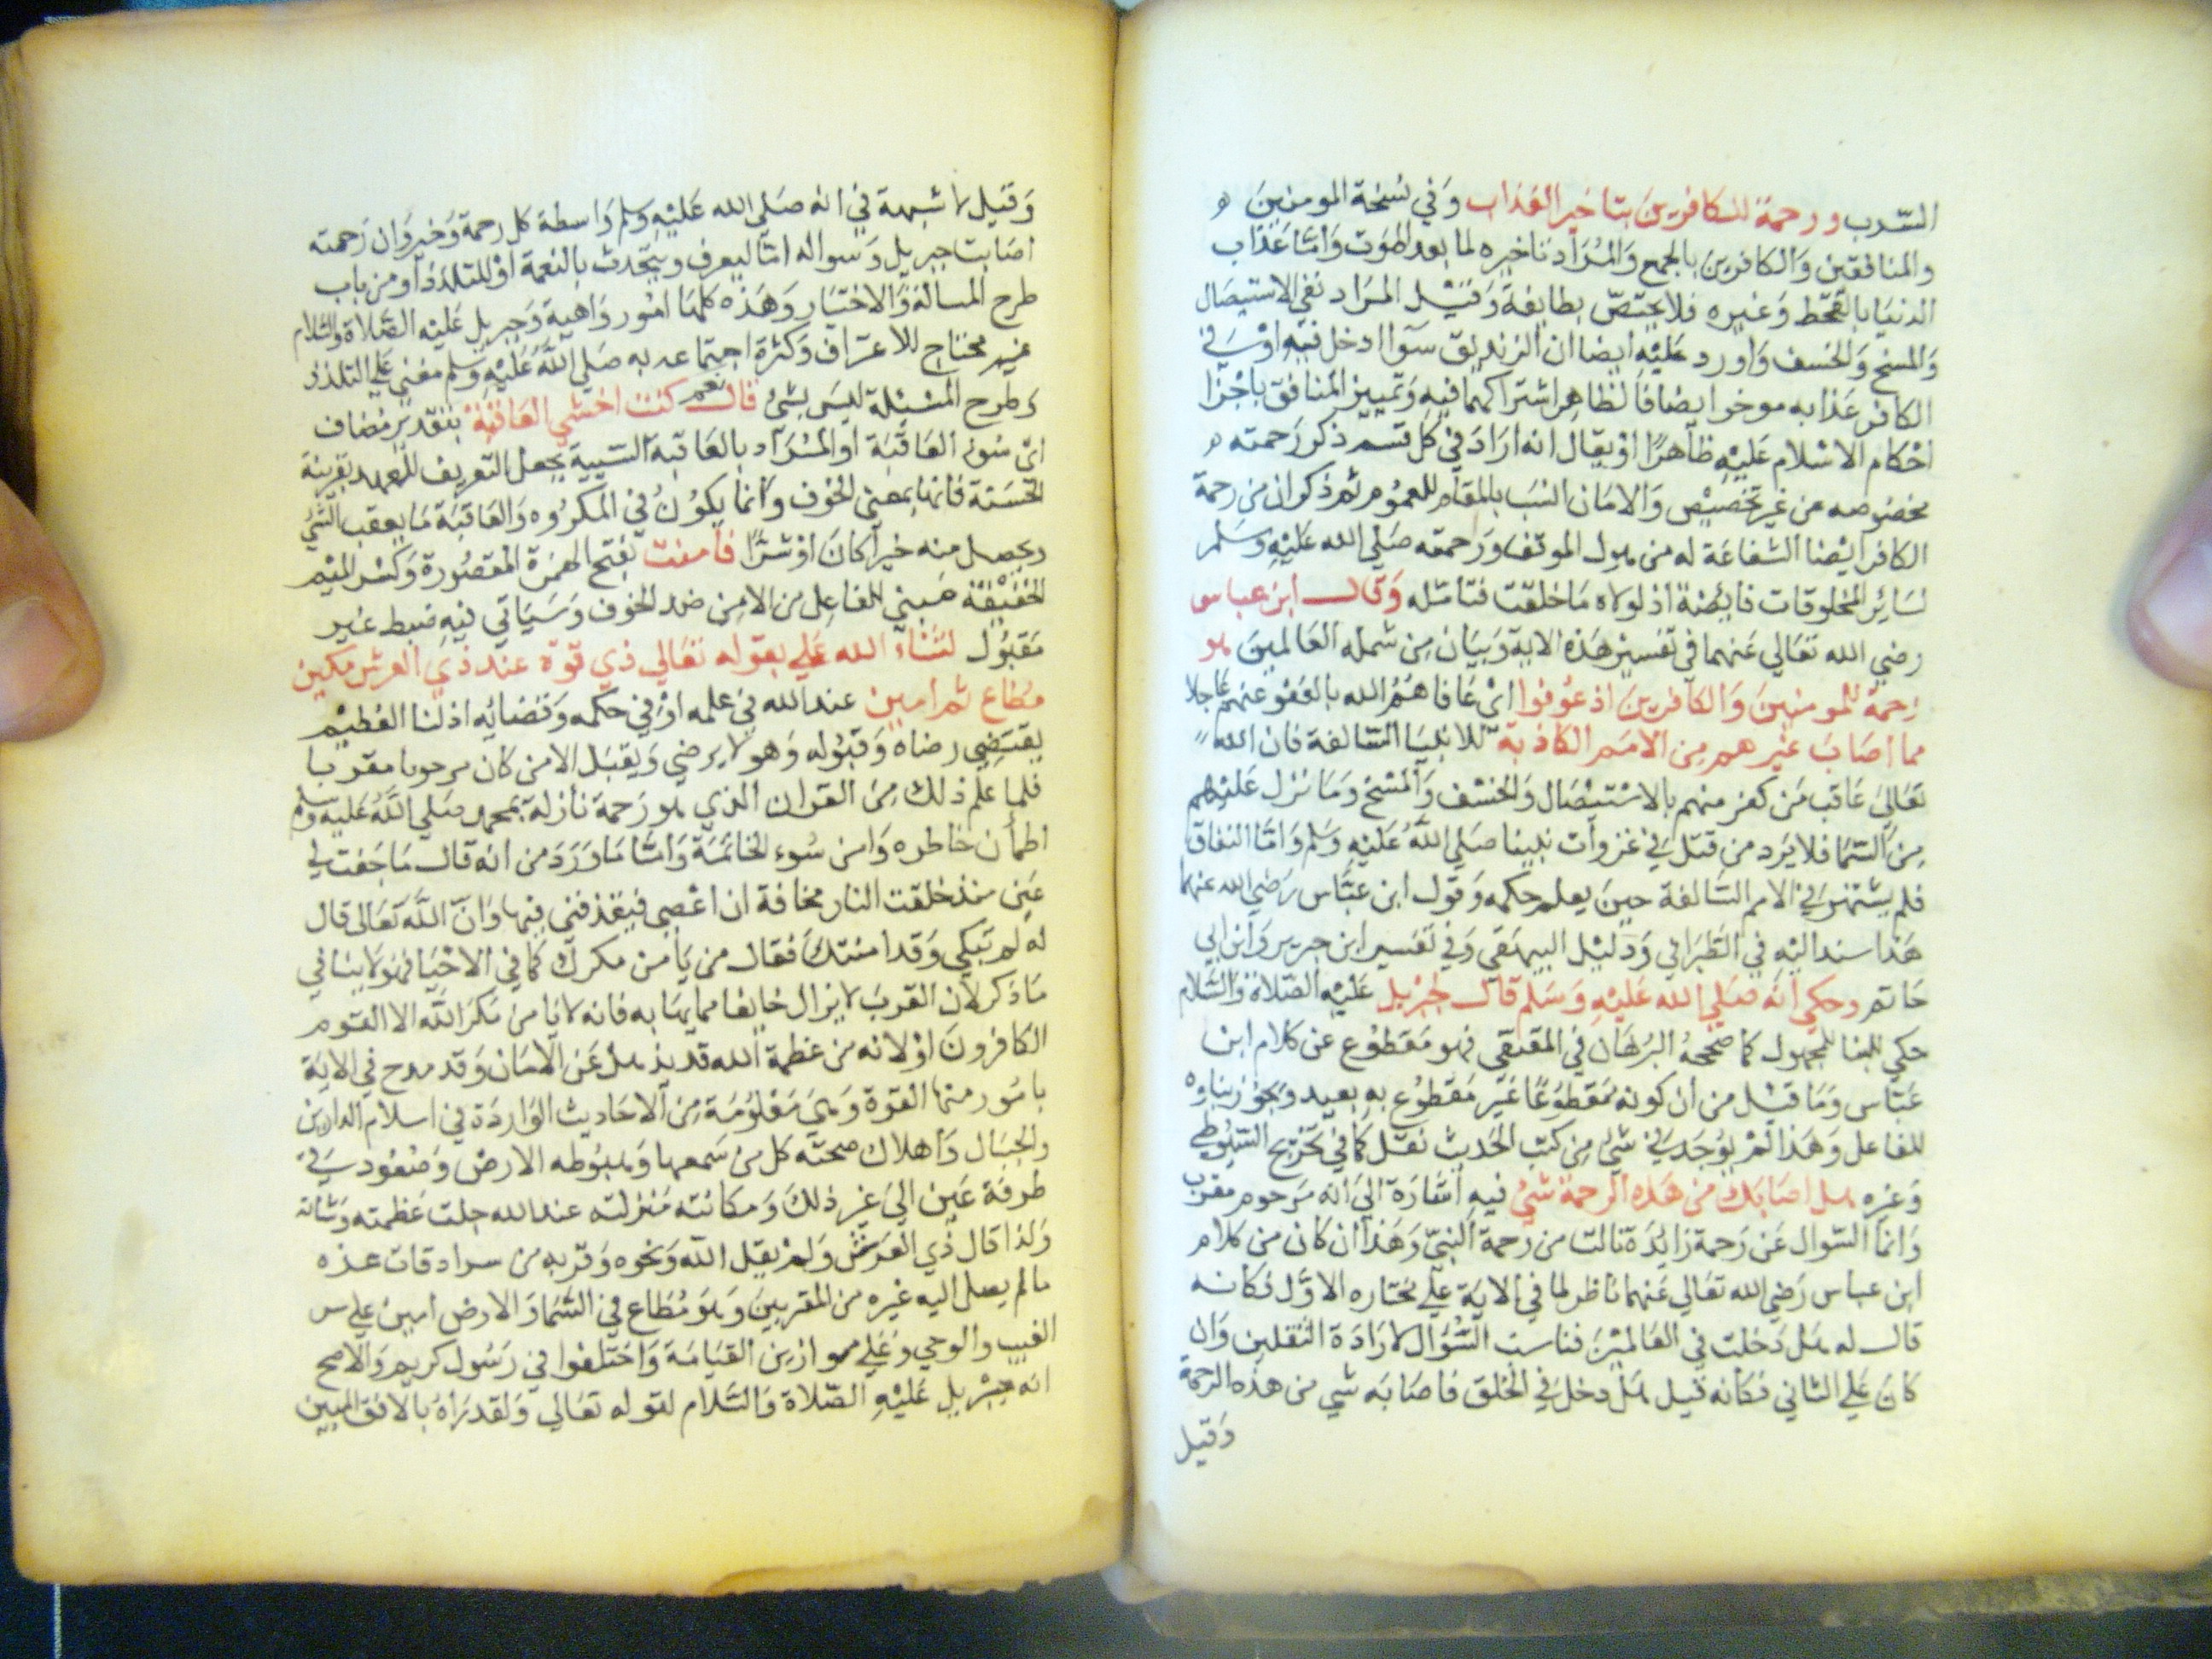 السرب ورحمة للكافرين بتاخير العذاب وفي نسخة المومنين
والمنافقين والكافرين بالجمع والمراد تاخيره لما بعد الموت واما عذاب
الدنيا بالقحط وغيره فلا يختص بطايفة وقيل المراد نفي الاستيصال
والمسخ والخسف واورد عليه ايضا ان الزنديق سوا ادخل فيه او في
الكافر عذابه موخر ايضا فالظاهر اشتراكهما فيه وتمييز المنافق باجرا
احكام الاسلام عليه ظاهرا او يقال انه اراد في كل قسم ذكر رحمته
مخصوصه من غير تخصيص والامان انسب بالمقام للعموم ثم ذكر ان من رحمة
الكافر ايضا الشفاعة له من هول الموقف ورحمته صلي الله عليه وسلم
لسائر المخلوقات فايضة اذ لولاه ما خلقت فتامله وقال ابن عباس
رضي الله تعالي عنهما في تفسير هذه الاية وبيان من شمله العالمين هو
رحمة للمومنين والكافرين اذ عوفوا اي عافاهم الله بالعفو عنهم عاجلا
مما اصاب غيرهم من الامم الكاذبة للانبيا السالفة فان الله
تعالي عاقب من كفر منهم بالاستيصال والخسف والمسخ وما نزل عليهم
من السما فلا يرد من قتل في غزوات نبينا صلي الله عليه وسلم واما النفاق
فلم يشتهر في الامم السالفة حين يعلم حكمه وقول ابن عباس رضي الله عنهما
هذا سند اليه في الطبراني ودليل البيهقي وفي تفسير ابن جرير وابن ابي
حاتم وحكي انه صلي الله عليه وسلم قال لجبريل عليه الصلاة والسلام
حكي للبنا للمجهول كما صححه البرهان في المقتفي فهو مقطوع عن كلام ابن
عباس وما قيل من ان كونه مقطوعا غير مقطوع به بعيد ويجوز بناوه
للفاعل وهذا لم يوجد في شي من كتب الحديث نقل كما في تخريج السيوطي
وغره هل اصابك من هذه الرحمة شي فيه اشارة الي انه مرحوم مقرب
وانما السوال عن رحمة زايدة نالت من رحمة النبي وهذا ان كان من كلام
ابن عباس رضي الله تعالي عنهما ناظر لما في الاية علي مختاره الاول فكانه
قال له هل دخلت في العالمين فناسب السوال لارادة الثقلين وان
كان علي الثاني فكانه قيل هل دخل في الخلق فاصابه شي من هذه الرحمة
وقيل
وقيل لا شبهة في انه صلي الله عليه وسلم واسطة كل رحمة وخير وان رحمته
اصابت جبريل وسواله اما ليعرف ويتحدث بالنعمة او للتلذذ او من باب
طرح المسالة والاختبار وهذه كلها امور واهية وجبريل عليه الصلاة والسلام
غير محتاج للاعتراف وكثرة اجتماعه به صلي الله عليه وسلم مغني علي التلذذ
وطرح المسئلة ليس بشي قال نعم كنت اخشي العاقبة بتقدير مضاف
اي سوء العاقبة او المراد بالعاقبة السيية بجعل التعريف للعهد بقرينة
الخشية فانها بمعني الخوف وانما يكون في المكروه والعاقبة ما يعقب الشي
ويحصل منه خيرا كان او شرا فامنت بفتح الهمزة المقصورة وكسر الميم
الخفيفة مبني للفاعل من الامن ضد الخوف وسياتي فيه ضبط غير
مقبول لثناء الله علي بقوله تعالي ذي قوة عند ذي العرش مكين
مطاع ثم امين عند الله في علمه او في حكمه وقضائه اذ لنا العظيم
يقتضي رضاه وقبوله وهو لا يرضي ويقبل الا من كان مرحوما مقربا
فلما علم ذلك من القران الذي هو رحمة نازلة بمحمد صلي الله عليه وسلم
اطمأن خاطره وامن سوء الخاتمة واما ما ورد من انه قال ما جفت لي
عين منذ خلقت النار مخافة ان اعصي فيقذفني فيها وان الله تعالي قال
له لم تبكي وقد امنتك فقال من يامن مكرك كما في الاحيا فهو لا ينافي
ما ذكر لان القرب لا يزال خايفا مما يهابه فانه لا يامن مكر الله الا القوم
الكافرون او لانه من عظمة الله قد يذهل عن الامان وقد مدح في الاية
بامور منها القوة وهي معلومة من الاحاديث الواردة في اسلام الدارين
والجبال واهلاك صحته كل من سمعها وهبوطه الارض وصعوده في
طرفة عين الي غير ذلك ومكانته منزلته عند الله جلت عظمته وشانه
ولذا قال ذي العرش ولم يقل الله ونحوه وقربه من سرادقات عزه
ما لم يصل اليه غيره من المقربين وهو مطاع في السما والارض امين علي س
الغيب والوحي وعلي موازين القيامة واختلفوا في رسول كريم والاصح
انه جبريل عليه الصلاة والسلام لقوله تعالي ولقد راه بالافق المبين